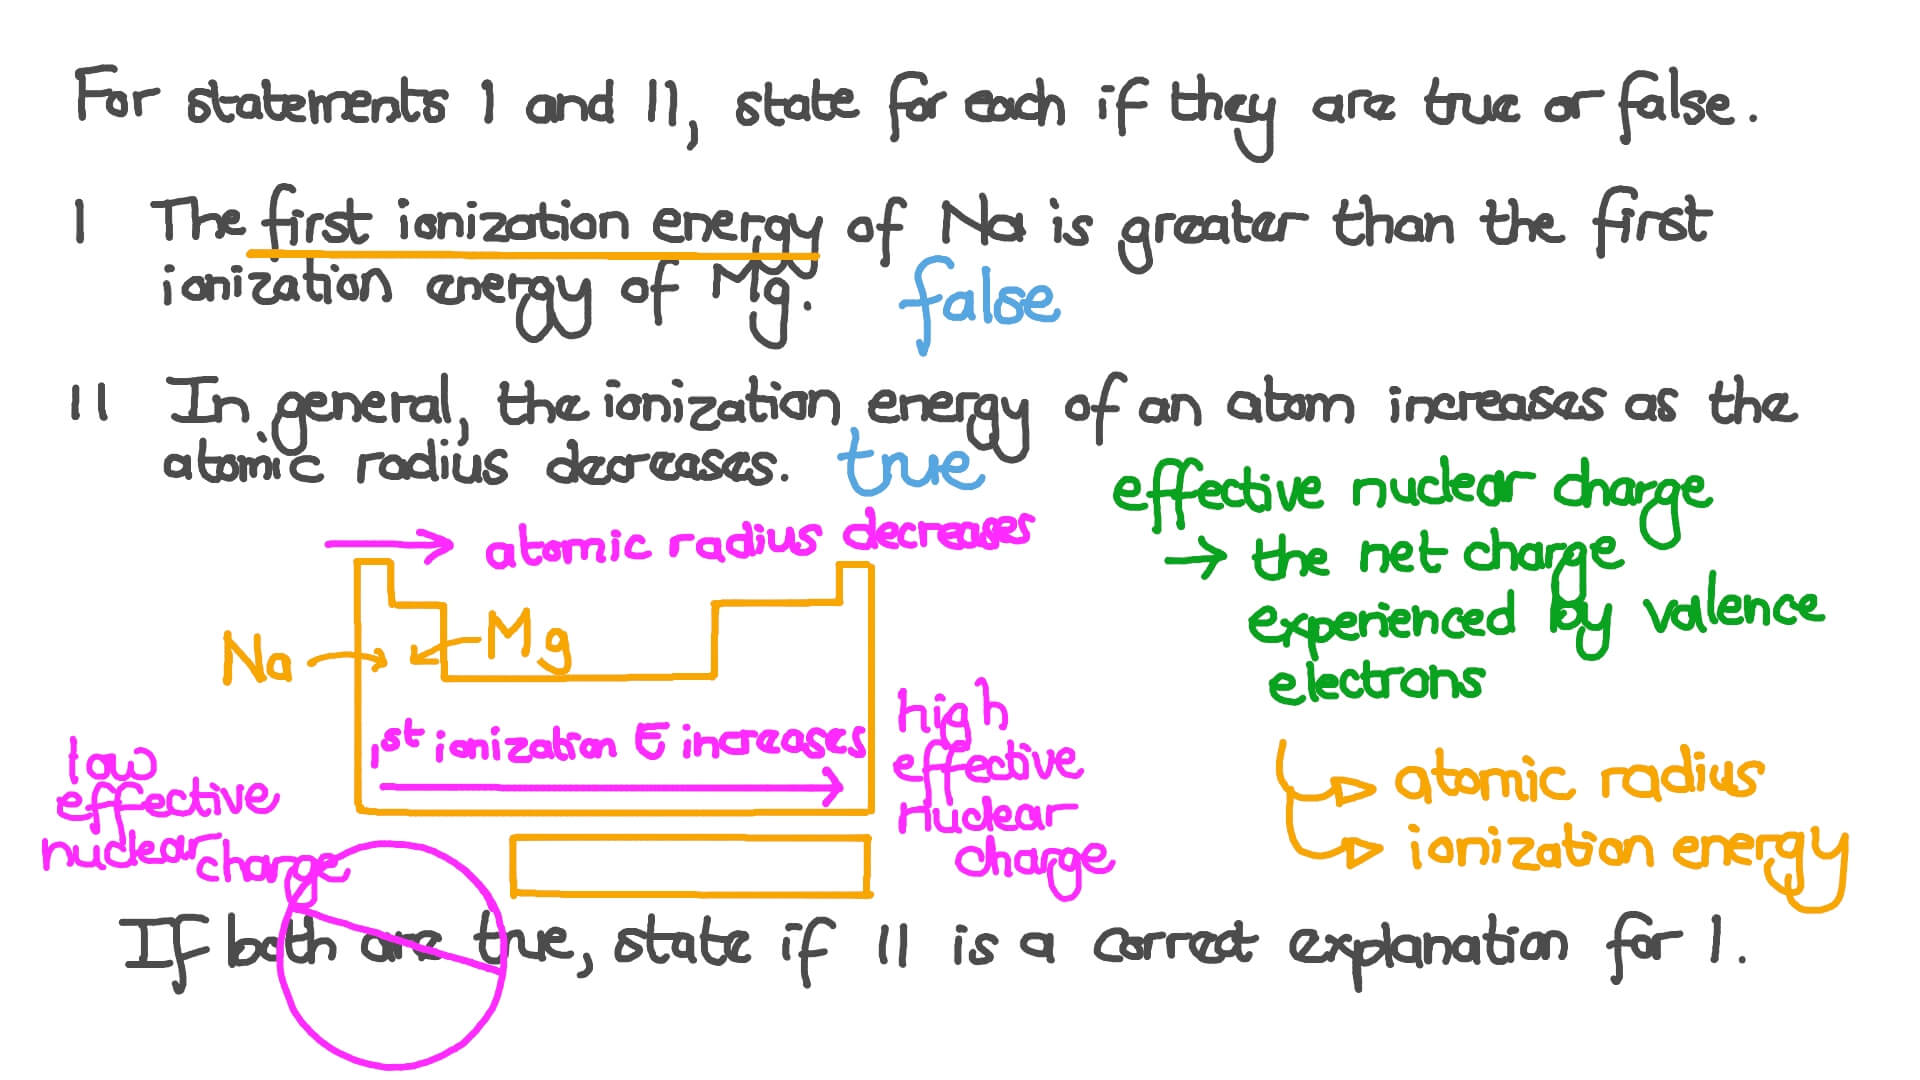 For statements I and II, state for each if they are true or false.
I The first ionization energy of Na is greater than the first
ionization energy of Mg. false
II In general, the ionization energy of an atom increases as the
atomic radius decreases. true
effective nuclear charge
→ the net charge
experienced by valence
electrons
→ atomic radius decreases
Na
Mg
1st ionization E increases
low
effective
nuclear charge
high
effective
nuclear
charge
atomic radius
ionization energy
If both are true, state if II is a correct explanation for I.